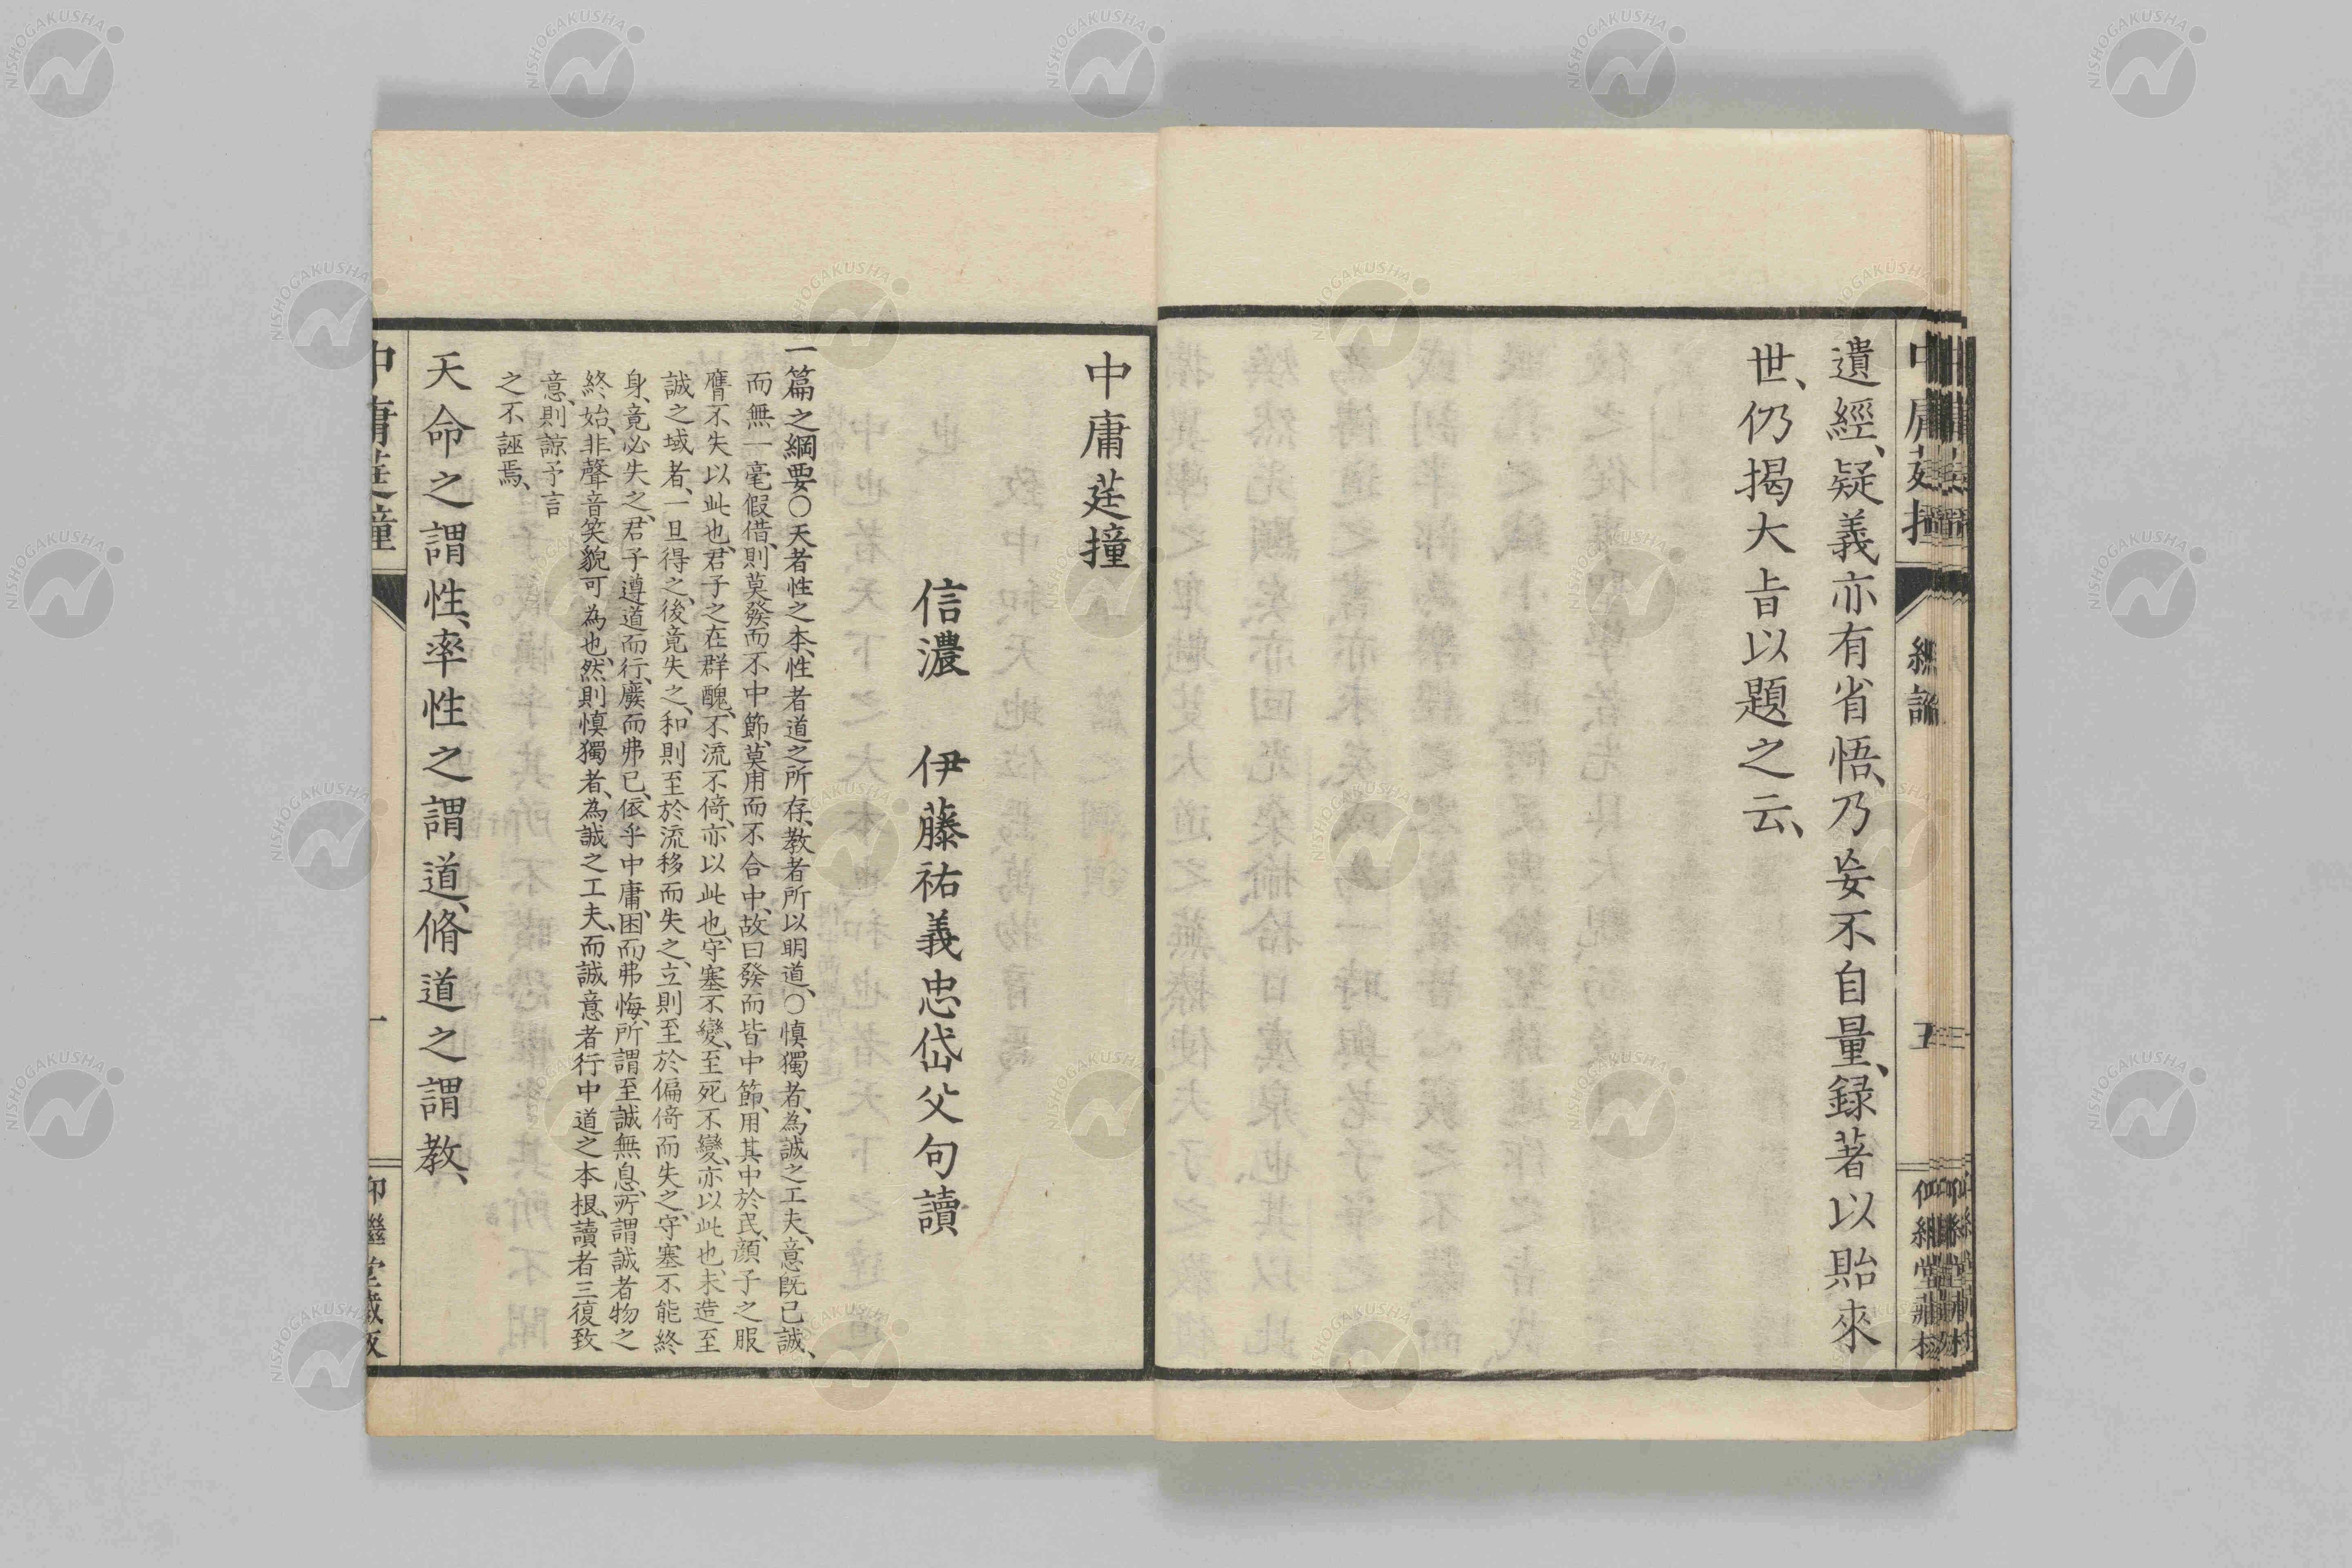 遺經、疑義亦有省悟、乃妄不自量、録著以貽來
世、仍揭大旨以題之云、
中庸莛撞
信濃 伊藤祐義忠岱父句讀
一篇之綱要○天者性之本、性者道之所存、教者所以明道、○慎獨者、為誠之工夫、意既已誠、
而無一毫假借、則莫發而不中節、莫用而不合中、故曰發而皆中節、用其中於民、顔子之服
膺不失以此也、君子之在群醜、不流不倚、亦以此也、守塞不變、至死不變、亦以此也、未造至
誠之域者、一旦得之、後竟失之、和則至於流移而失之、立則至於偏倚而失之、守塞不能終
身、竟必失之、君子遵道而行、廢而弗已、依乎中庸、困而弗悔、所謂至誠無息、所謂誠者物之
終始、非聲音笑貌可為也、然則慎獨者、為誠之工夫、而誠意者行中道之本根、讀者三復致
意、則諒予言
之不誣焉、
天命之謂性、率性之謂道、脩道之謂教、
中庸莛撞
一